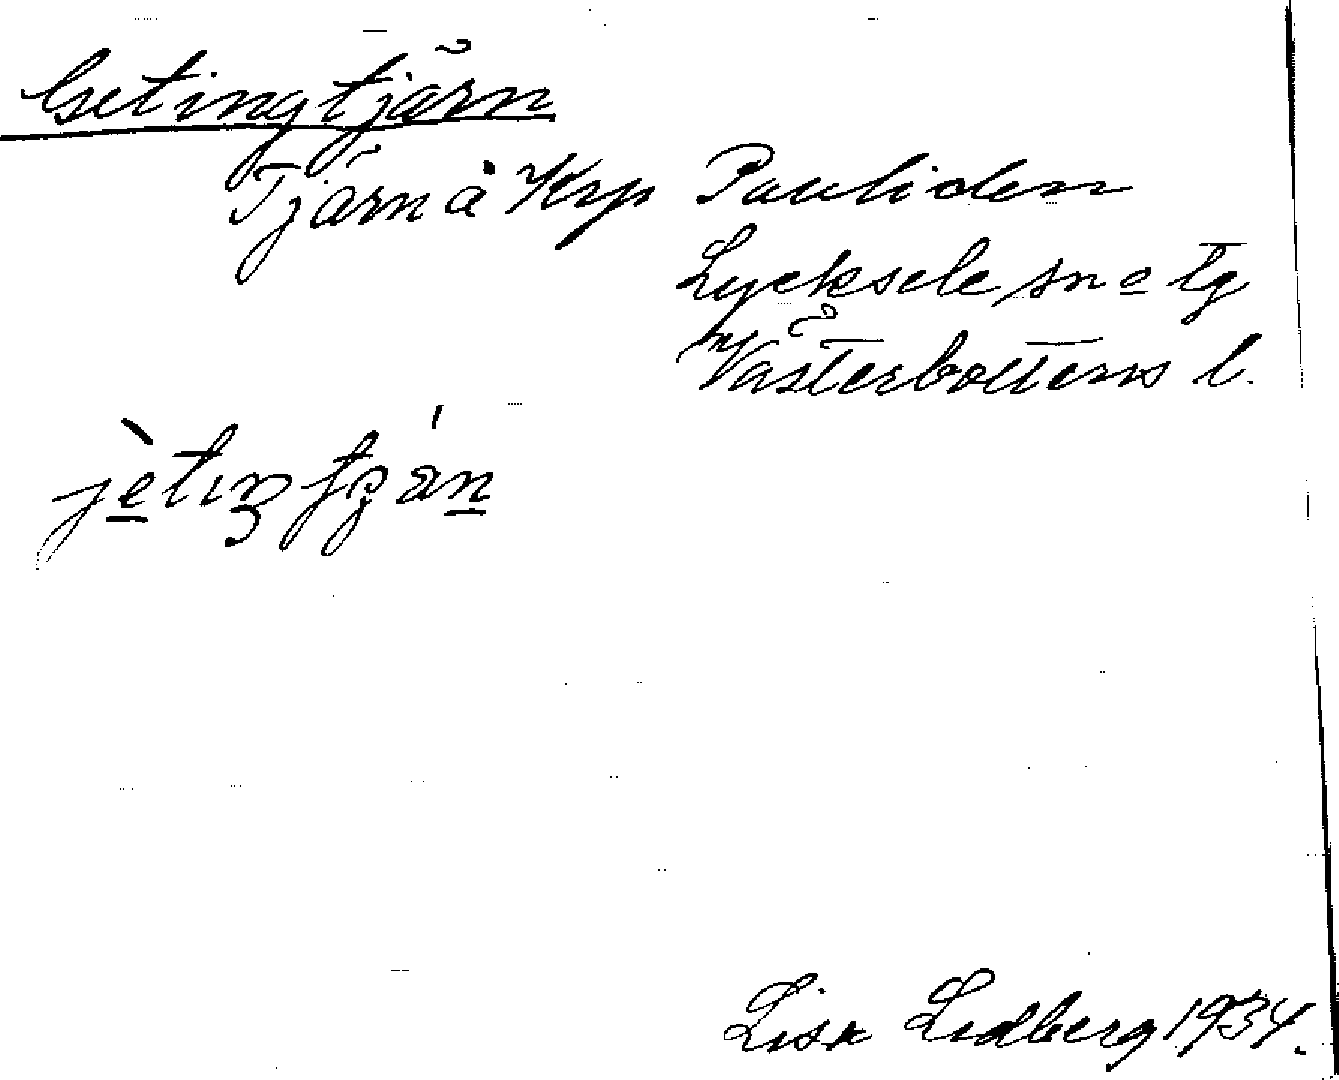 Getingtjärn
Tjärn å Krp Pauliden
Lycksele sn o tg
Västerbottens l.
Lisa Lidberg 1934.